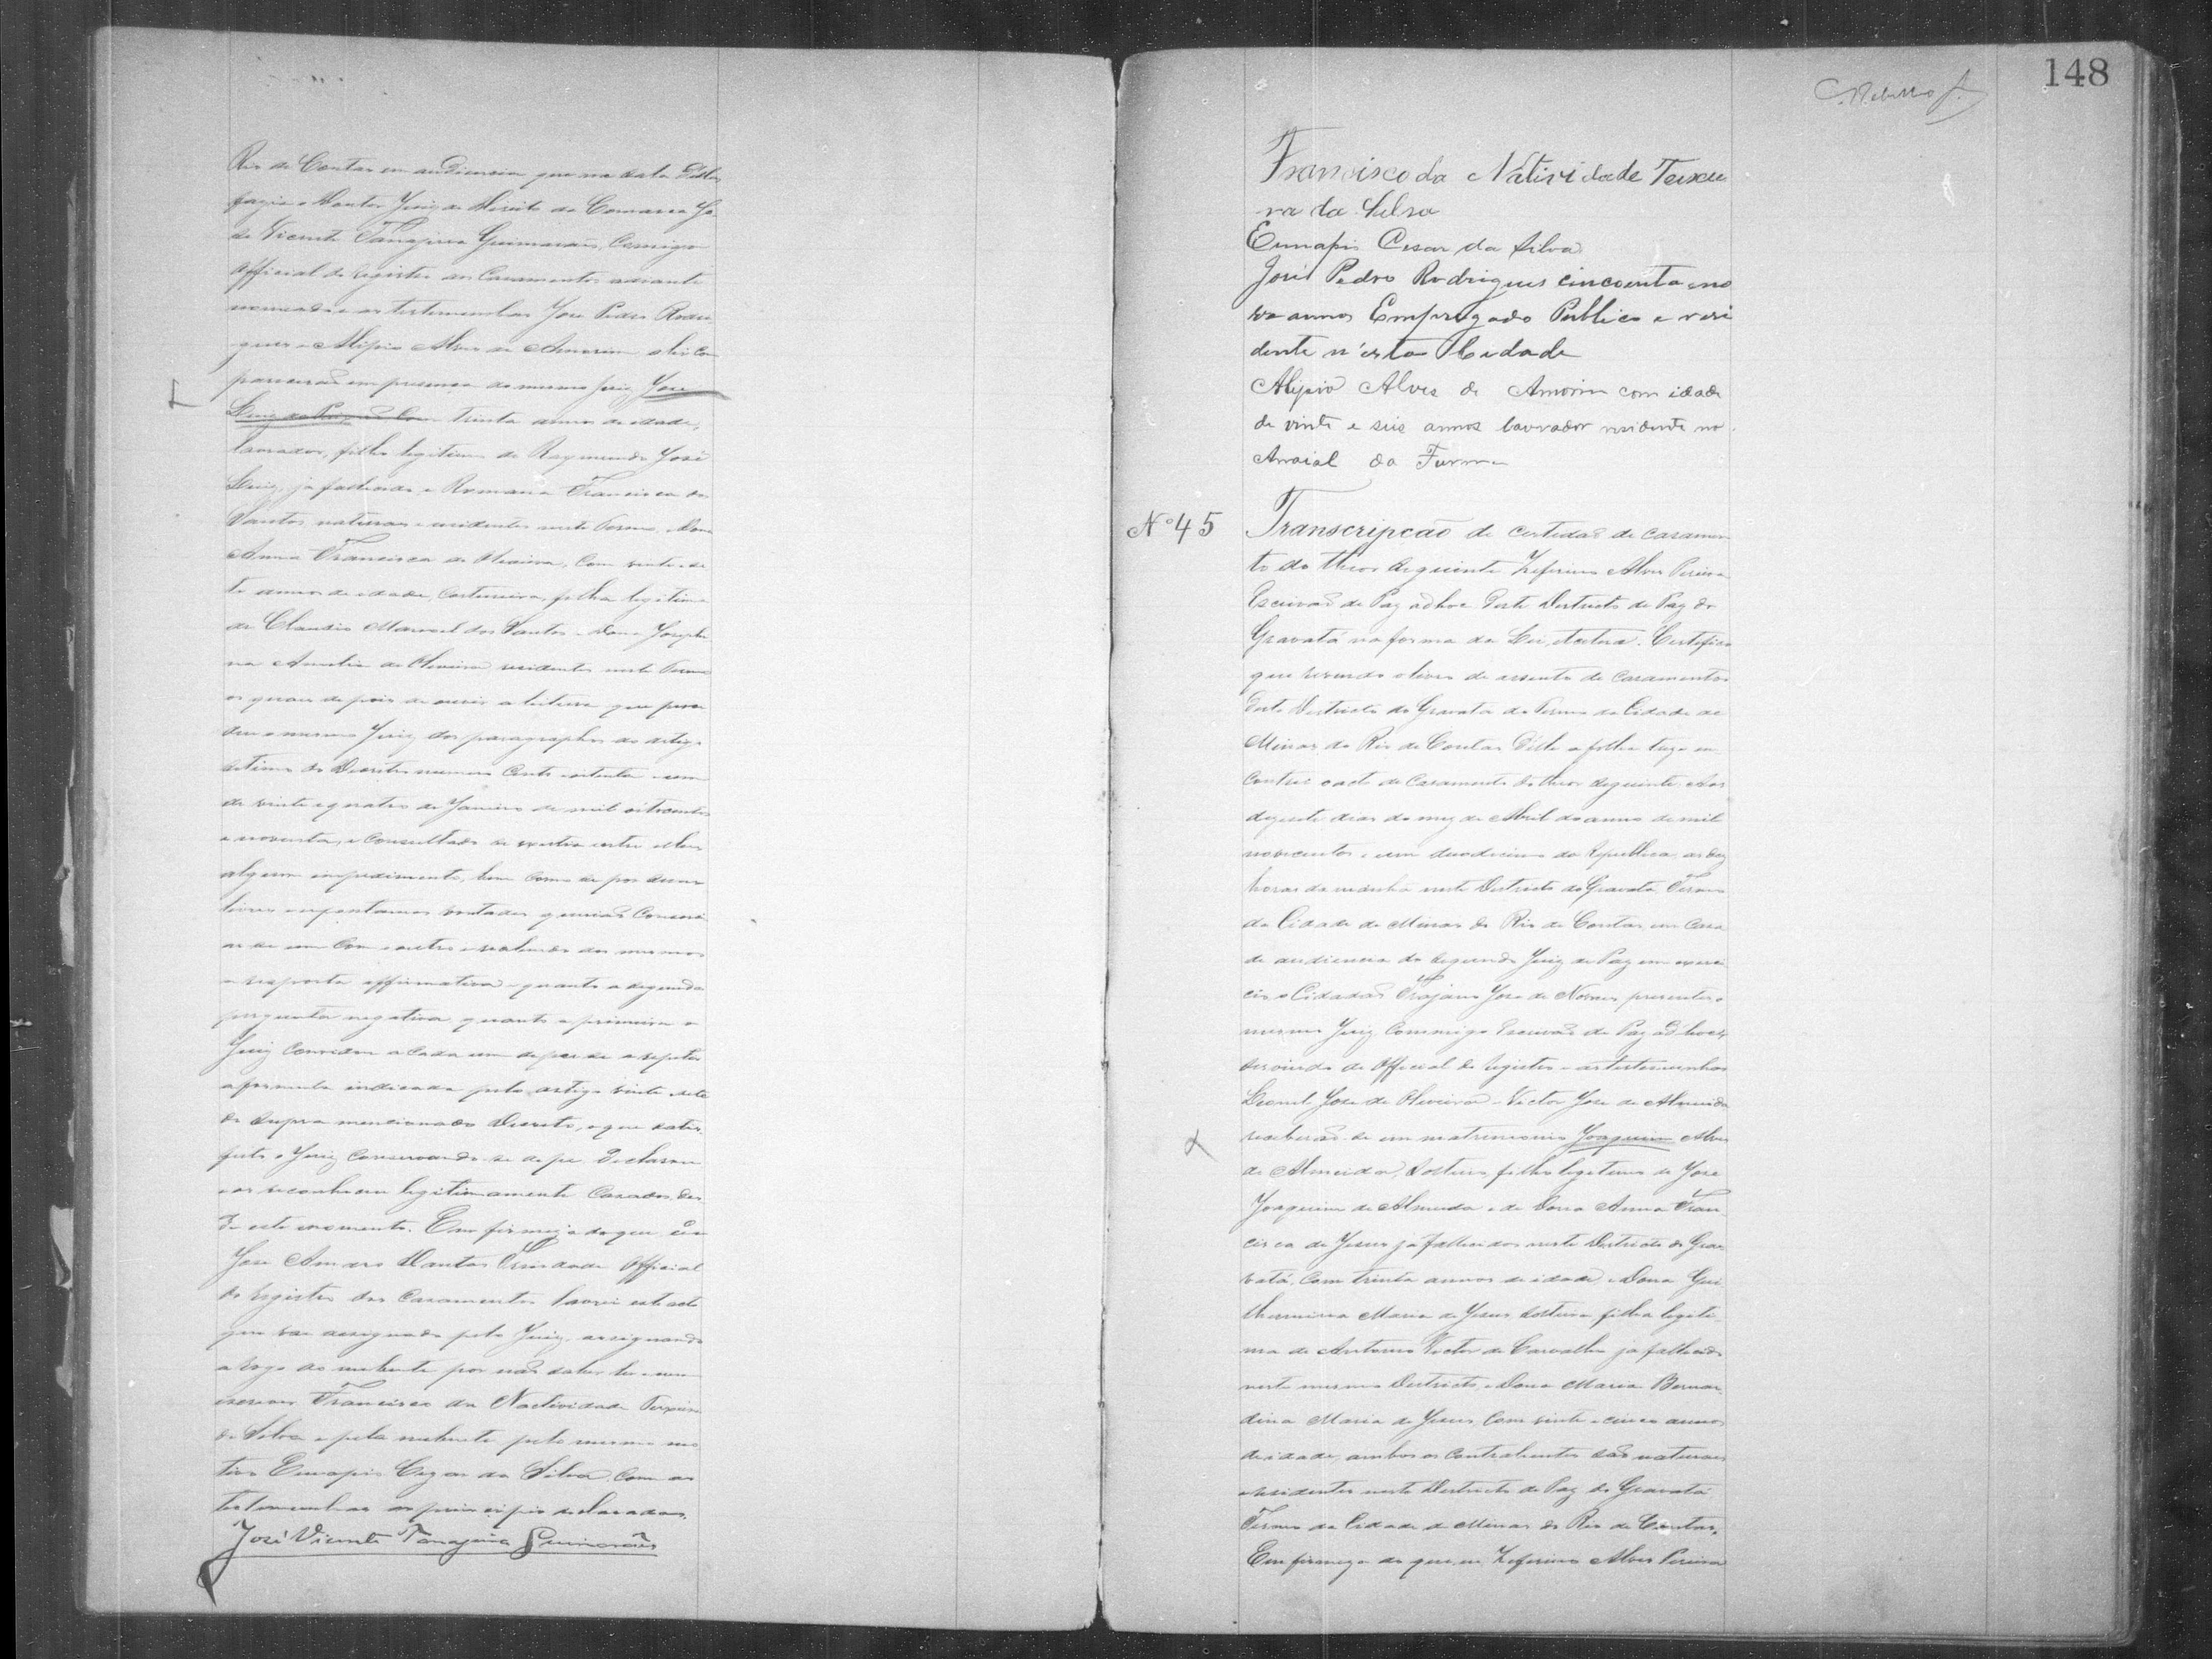 Rio de Contas em audiencia que na sala della
fazia o Doutor Juiz de Direito da Comarca Jo
sé Vicente Tanajura Guimarães, Comigo
Official do registro dos Casamentos adiante
nomeado e as testemunhas José Pedro Rodri
gues e Alipio Alves de Amorim ahi com
parecerão em presença do mesmo Juiz José
Luiz com trinta annos de idade,
lavrador, filho legitimo de Raymundo José
Luiz, já fallecido, e Romana Francisca dos
Santos naturaes e residentes neste Termo e Dona
Anna Francisca de Oliveira, com vinte e se
te annos de edade, Costureira, filha legitima
de Claudio Manoel dos Santos e Dona Josephi
na Amelia de Oliveira residentes neste Termo
os quaes depois de ouvir a leitura que proce
deu o mesmo Juiz dos paragraphos do artigo
setimo do Decreto numero Cento e oitenta e um
de vinte e quatro de Janeiro de mil oitocentos
e noventa, e Consultado se existia entre elles
algum impedimento, bem como se por suas
livres e espontaneas vontades querião Consorci
ar-se um com o outro e recebendo dos mesmos
a resposta affirmativa quanto a segunda
pergunta negativa quanto a primeira o
Juiz Convidou a cada um de per si a repetir
a formula indicada pelo artigo vinte e sete
do supra mencionado Decreto, o que satis
feito o Juiz Conservando-se de pé Declarou
e os reconheceu legitimamente Casados des
de este momento. Em firmeza do que eu
José Amaro Dantas Trindade Official
do registro dos Casamentos lavrei este acto
que vae assignado pelo Juiz, assignando
a rogo do nubente por não saber ler e nem
escrever Francisco da Natividade Teixeira
da Silva e pela nubente pelo mesmo mo
tivo Eunapio Cezar da Silva, Com as
testemunhas ao principio declaradas.
José Vicente Tanajura Guimarães
148
Francisco da Natividade Teixei
ra da Silva
Eunapio Cesar da Silva
José Pedro Rodrigues cincoenta e no
ve annos Empregado Publico e resi
dente n'esta Cidade
Alipio Alves de Amorim com idade
de vinte e seis annos lavrador residente no
Arraial da Furna
Nº 45
Transcripcão de certidão de casamen
to do theor seguinte Zeferino Alves Pereira
Escrivão de Paz adhoc deste Districto de Paz do
Gravatá na forma da Lei, etcetera. Certifico
que revendo o livro de assento de Casamentos
deste Districto do Gravatá do Termo da Cidade de
Minas do Rio de Contas Delle a folha treze en
contrei o acto de Casamento do theor seguinte. Aos
dezesete dias do mez de Abril do anno de mil
novecentos e um duodecimo da Republica, as dez
horas da manhã neste Districto do Gravatá, Termo
da Cidade de Minas do Rio de Contas, em Casa
de audiencia do segundo Juiz de Paz em exerci
cio o Cidadão Trajano José de Novaes, presentes o
mesmo Juiz Commigo Escrivão de Paz adhoc
servindo de Official do registro e as testemunhas
Leonel José de Oliveira e Victor José de Almeida
receberão-se em matrimonio Joaquim Alves
de Almeida, Solteiro, filho legitimo de José
Joaquim de Almeida e de Dona Anna Fran
cisca de Jesus já fallecidos neste Districto do Gra
vatá, Com trinta annos de idade e Dona Gui
lhermina Maria de Jesus solteira filha legiti
ma de Antonio Victor de Carvalho já fallecido
neste mesmo Districto, e Dona Maria Bernar
dina Maria de Jesus, Com vinte e cinco annos
de idade, ambos os Contrahentes são naturaes
e residentes neste Districto de Paz do Gravatá
Termo da Cidade de Minas do Rio de Contas.
Em firmeza do que, eu Zeferino Alves Pereira